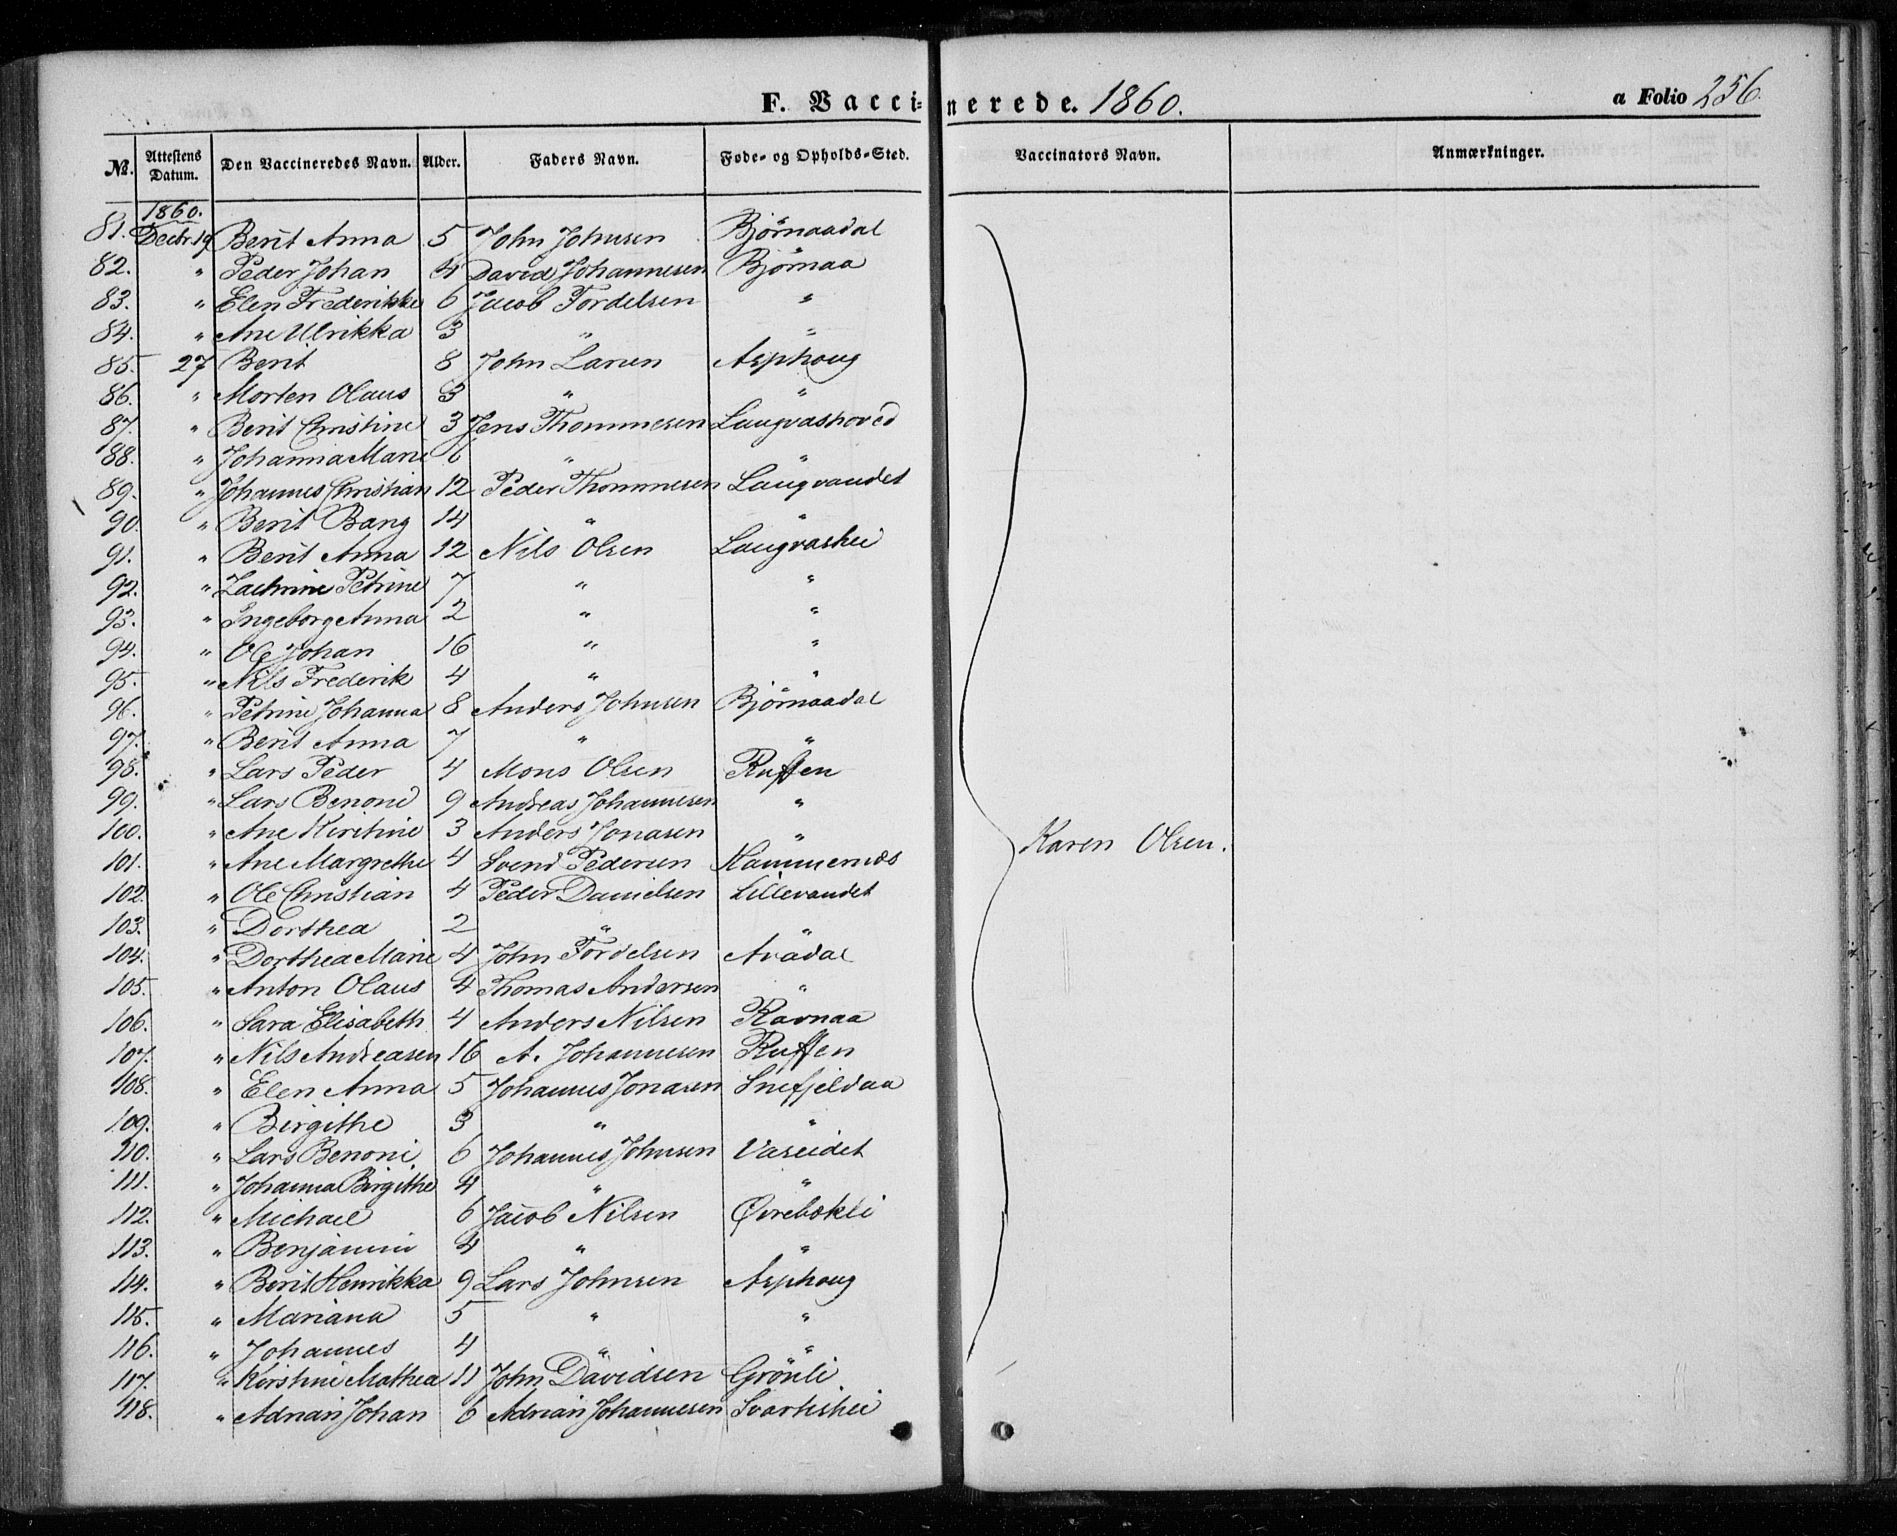 F. Vaccinerede. 1860. a Folio 256.
No. Attestens Datum. Den Vaccineredes Navn. Alder. Faders Navn. Føde- og Opholds-Sted. Vaccinators Navn. Anmærkninger.
1860.
81. Decbr. 19 Berit Anna 5 John Johnsen Bjørnaadal
82. " Peder Johan 4 David Johannesen Bjørnaa
83. " Elen Frederikke 6 Jacob Tordelsen "
84. " Ane Ulrikka 3 " "
85. 27 Berit 8 John Larsen Asphoug
86. " Morten Olaus 3 " "
87. " Berit Christine 3 Jens Thommesen Langvashoved
88. " Johanna Marie 6 " "
89. " Johannes Christian 12 Peder Thommesen Langvandet
90. " Berit Bang 14 " "
91. " Berit Anna 12 Nils Olsen Langvashei
92. " Petrine 7 " "
93. " Ingeborg Anna 2 " "
94. " Ole Johan 16 " "
95. " Nils Frederik 4 " "
96. " Petrine Johanna 8 Anders Johnsen Bjørnaadal
97. " Berit Anna 7 " "
98. " Lars Peder 4 Mons Olsen Ruffen
99. " Lars Benoni 9 Andreas Johannesen "
100. " Ane Kirstine 3 Anders Jonasen "
101. " Ane Margrethe 4 Svend Pedersen Hammernæs
102. " Ole Christian 4 Peder Danielsen Lillevandet
103. " Dorthea 2 " "
104. " Dorthea Marie 4 John Tordelsen Avādal
105. " Anton Olaus 4 Thomas Andersen "
106. " Sara Elisabeth 4 Anders Nilsen Ravnaa
107. " Nils Andreasen 16 A. Johannesen Ruffen
108. " Elen Anna 5 Johannes Jonasen Snefjeldaa
109. " Birgithe 3 " "
110. " Lars Benoni 6 Johannes Johnsen Vaseidet
111. " Johanna Birgithe 4 " "
112. " Michael 6 Jacob Nilsen Øvrebækli
113. " Benjamin 4 " "
114. " Berit Henrikka 9 Lars Johnsen Asphoug
115. " Mariana 5 " "
116. " Johannes 4 " "
117. " Kirstine Mathea 11 John Davidsen Grönli
118. " Adrian Johan 6 Adrian Johannesen Svartishei
Karen Olsen.